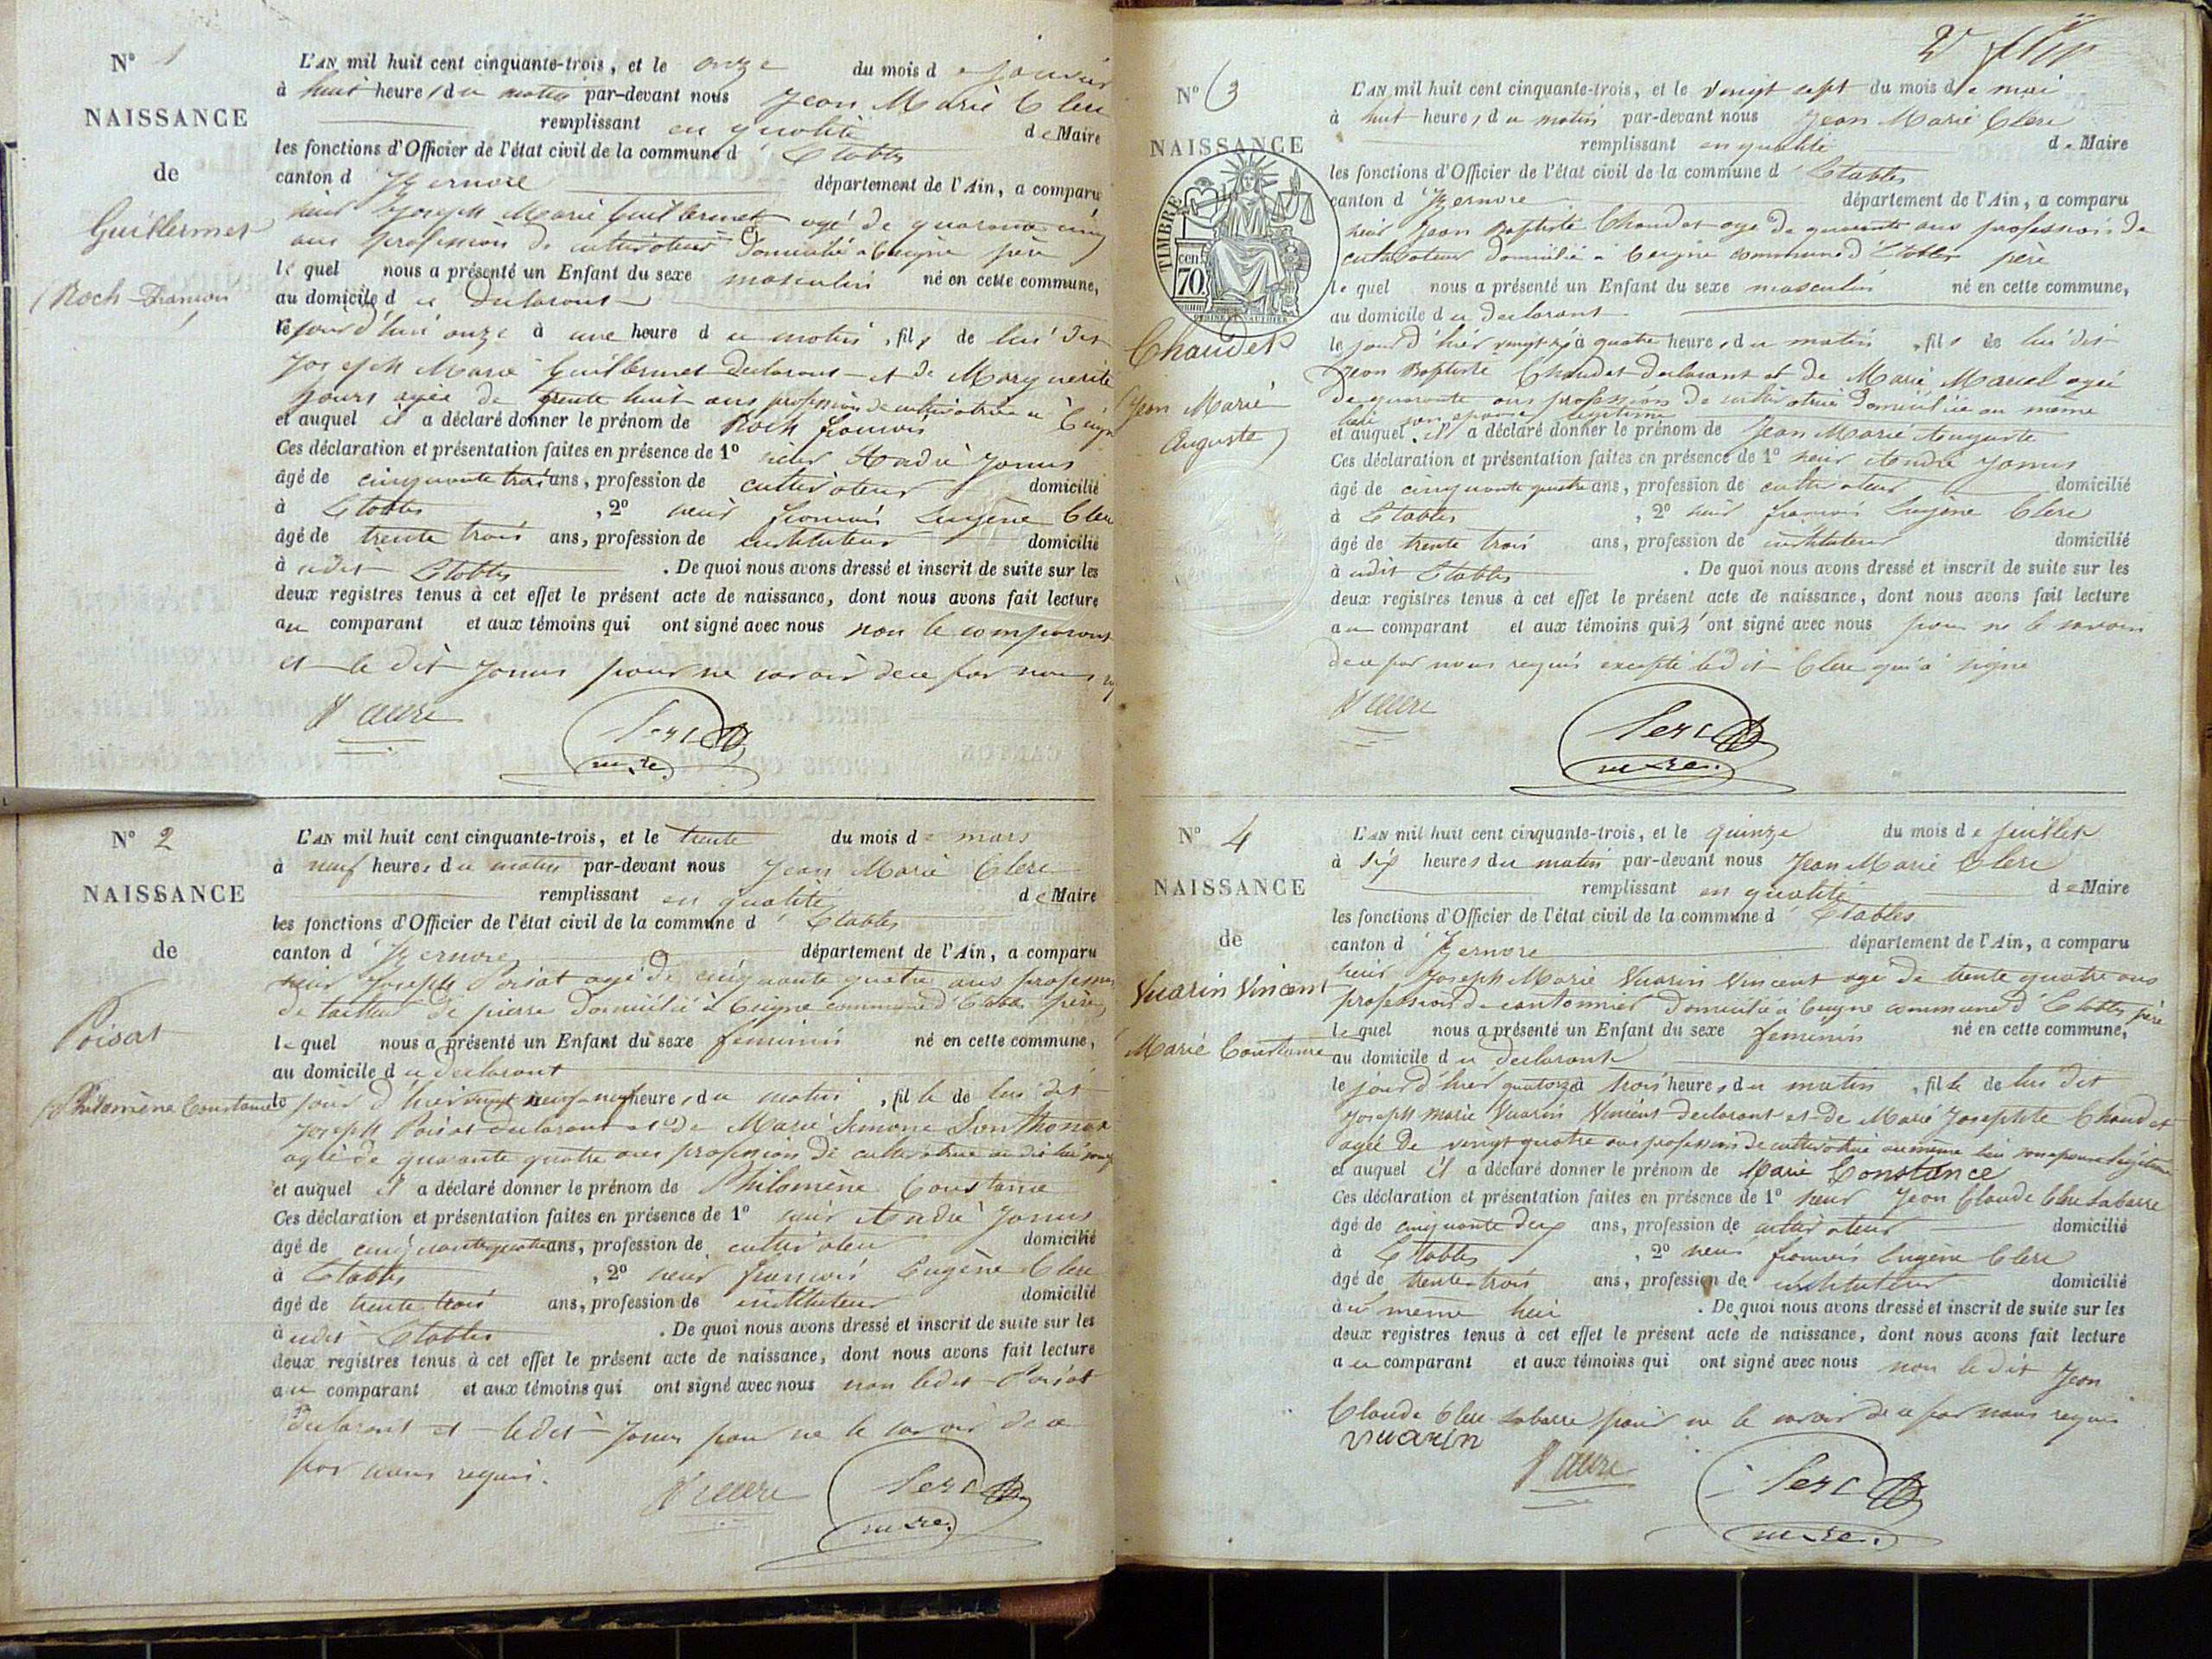 N° 1
NAISSANCE
de
Guillermet
(Roch François
L'AN mil huit cent cinquante-trois, et le onze du mois de Janvier
à huit heures du matin par-devant nous Jean Marie Clerc
remplissant en qualité de Maire
les fonctions d'Officier de l'état civil de la commune d' Etables
canton d' Izernore département de l'Ain, a comparu
sieur Joseph Marie Guillermet agé de quarante cinq
ans profession de cultivateur domicilié à Ceigne père
le quel nous a présenté un Enfant du sexe masculin né en cette commune,
au domicile du declarant
le jour d'hui onze à une heure du matin, fils de lui dit
Joseph Marie Guillermet declarant et de Marguerite
agée de trente huit ans profession de cultivatrice à Ceigne
et auquel il a déclaré donner le prénom de Roch françois
Ces déclaration et présentation faites en présence de 1° sieur André Jomus
âgé de cinquante trois ans, profession de cultivateur domicilié
à Etables, 2° sieur françois Eugène Clerc
âgé de trente trois ans, profession de instituteur domicilié
à udit Etables. De quoi nous avons dressé et inscrit de suite sur les
deux registres tenus à cet effet le présent acte de naissance, dont nous avons fait lecture
au comparant et aux témoins qui ont signé avec nous non le comparant
et le dit Jomus pour ne savoir de ce par nous
Clerc
Clerc
maire
N° 2
NAISSANCE
de
Poisat
(Philomène Constance
L'AN mil huit cent cinquante-trois, et le trente du mois de mars
à neuf heures du matin par-devant nous Jean Marie Clerc
remplissant en qualité de Maire
les fonctions d'Officier de l'état civil de la commune d' Etables
canton d' Izernore département de l'Ain, a comparu
sieur Joseph Poisat agé de cinquante quatre ans profession
de tailleur de pierre domicilié à Ceigne commune d'Etables père
le quel nous a présenté un Enfant du sexe feminin né en cette commune,
au domicile du declarant
le jour d'hier vingt neuf à neuf heures du matin, fille de lui dit
Joseph Poisat declarant et de Marie Simone Sonthonax
agée de quarante quatre ans profession de cultivatrice au dit lieu
et auquel il a déclaré donner le prénom de Philomène Constance
Ces déclaration et présentation faites en présence de 1° sieur André Jomus
âgé de cinquante quatre ans, profession de cultivateur domicilié
à Etables, 2° sieur françois Eugène Clerc
âgé de trente trois ans, profession de instituteur domicilié
à udit Etables. De quoi nous avons dressé et inscrit de suite sur les
deux registres tenus à cet effet le présent acte de naissance, dont nous avons fait lecture
au comparant et aux témoins qui ont signé avec nous non ledit Poisat
declarant et ledit Jomus pour ne le savoir de ce
par nous requis.
Clerc
Clerc
maire
N° 3
NAISSANCE
TIMBRE
70 cen.
Chaudet
(Jean Marie
Auguste)
L'AN mil huit cent cinquante-trois, et le vingt sept du mois de mai
à huit heures du matin par-devant nous Jean Marie Clerc
remplissant en qualité de Maire
les fonctions d'Officier de l'état civil de la commune d' Etables
canton d' Izernore département de l'Ain, a comparu
sieur Jean Baptiste Chaudet age de quarante ans profession de
cultivateur domicilié à Ceigne commune d'Etables père
le quel nous a présenté un Enfant du sexe masculin né en cette commune,
au domicile du declarant
le jour d'hier vingt six à quatre heures du matin, fils de lui dit
Jean Baptiste Chaudet declarant et de Marie Maricel agée
de quarante ans profession de cultivatrice domiciliée au même
lieu son epouse legitime
et auquel il a déclaré donner le prénom de Jean Marie Auguste
Ces déclaration et présentation faites en présence de 1° sieur André Jomus
âgé de cinquante quatre ans, profession de cultivateur domicilié
à Etables, 2° sieur françois Eugène Clerc
âgé de trente trois ans, profession de instituteur domicilié
à udit Etables. De quoi nous avons dressé et inscrit de suite sur les
deux registres tenus à cet effet le présent acte de naissance, dont nous avons fait lecture
au comparant et aux témoins qui n'ont signé avec nous pour ne le savoir
de ce par nous requis excepté ledit Clerc qui a signé
Clerc
Clerc
maire
N° 4
NAISSANCE
de
Vuarin Vincent
Marie Constance
L'AN mil huit cent cinquante-trois, et le quinze du mois de juillet
à six heures du matin par-devant nous Jean Marie Clerc
remplissant en qualité de Maire
les fonctions d'Officier de l'état civil de la commune d' Etables
canton d' Izernore département de l'Ain, a comparu
sieur Joseph Marie Vuarin Vincent age de trente quatre ans
profession de cantonnier domicilié à Ceigne commune d'Etables père
le quel nous a présenté un Enfant du sexe feminin né en cette commune,
au domicile du declarant
le jour d'hier quatorze à trois heures du matin, fille de lui dit
Joseph Marie Vuarin Vincent declarant et de Marie Josephte Chaudet
agée de vingt quatre ans profession de cultivatrice au même lieu son epouse legitime
et auquel il a déclaré donner le prénom de Marie Constance
Ces déclaration et présentation faites en présence de 1° sieur Jean Claude Clerc Labarre
âgé de cinquante deux ans, profession de cultivateur domicilié
à Etables, 2° sieur françois Eugène Clerc
âgé de trente trois ans, profession de instituteur domicilié
au même lieu. De quoi nous avons dressé et inscrit de suite sur les
deux registres tenus à cet effet le présent acte de naissance, dont nous avons fait lecture
au comparant et aux témoins qui ont signé avec nous non le dit Jean
Claude Clerc Labarre pour ne le savoir de ce par nous requis
vuarin
Clerc
Clerc
maire